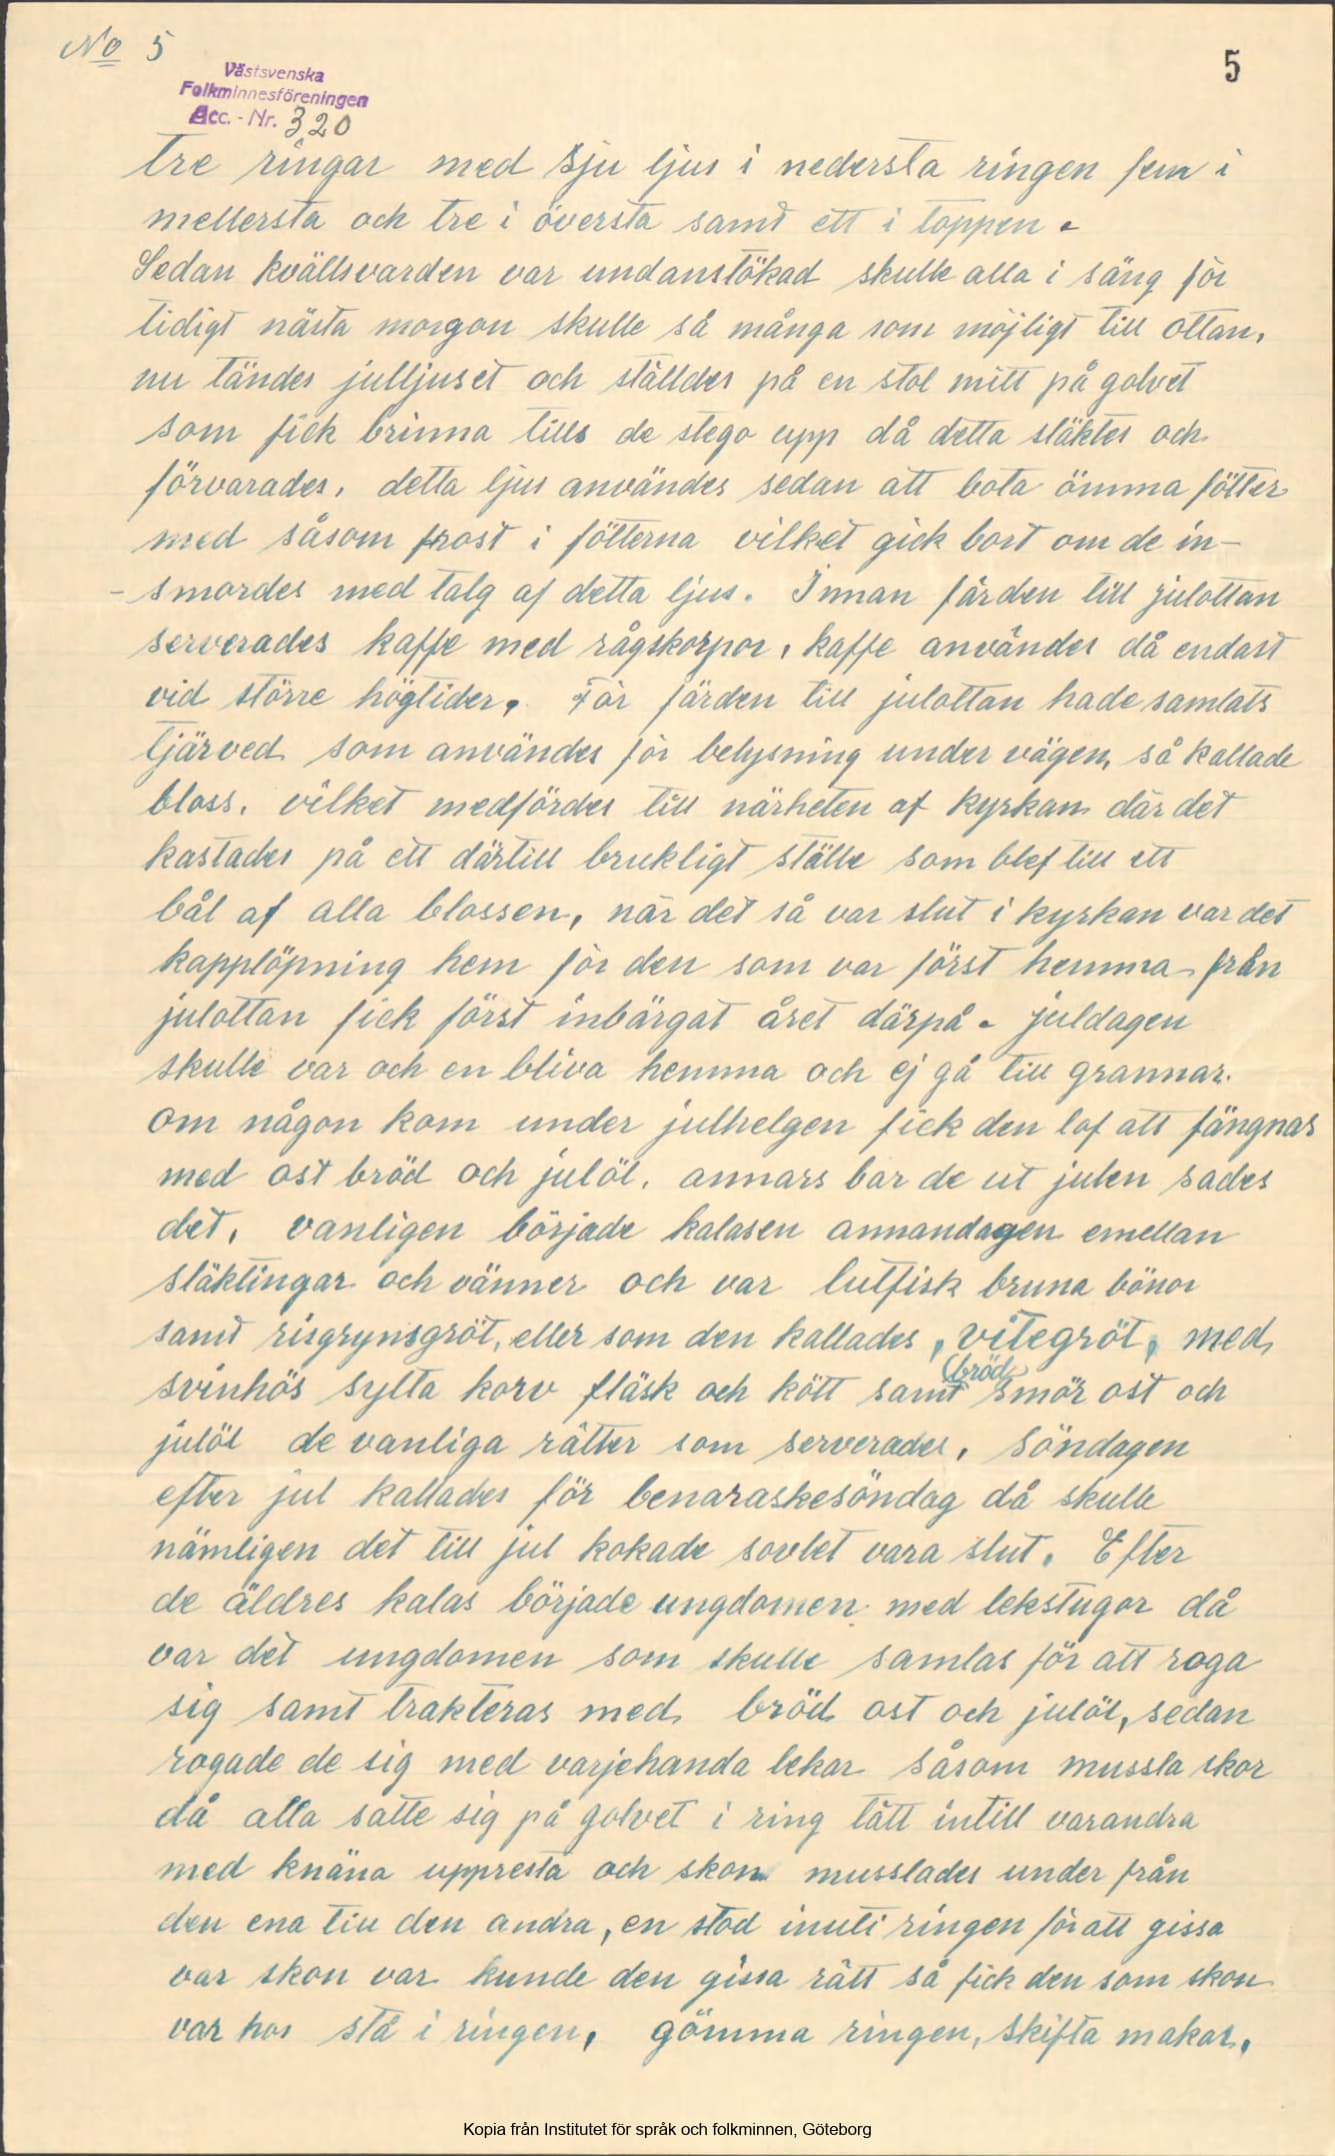 No 5
5
Västsvenska
Folkminnesföreningen
Acc. - Nr. 320
tre ringar med sju ljus i nedersta ringen fem i
mellersta och tre i översta samt ett i toppen.
Sedan kvällsvarden var undanstökad skulle alla i säng för
tidigt nästa morgon skulle så många som möjligt till ottan.
nu tändes julljuset och ställdes på en stol mitt på golvet
som fick brinna tills de stego upp då detta släktes och
förvarades, detta ljus användes sedan att bota ömma fötter
med såsom frost i fötterna vilket gick bort om de in-
-smordes med talg af detta ljus. Innan färden till julottan
serverades kaffe med rågskorpor, kaffe användes då endast
vid större högtider. För färden till julottan hade samlats
tjärved som användes för belysning under vägen, så kallade
bloss, vilket medfördes till närheten af kyrkan där det
kastades på ett därtill brukligt ställe som blef till ett
bål af alla blossen, när det så var slut i kyrkan var det
kapplöpning hem för den som var först hemma från
julottan fick först inbärgat året därpå. juldagen
skulle var och en bliva hemma och ej gå till grannar.
om någon kom under julhelgen fick den lof att fängnas
med ost bröd och julöl, annars bar de ut julen sades
det, vanligen började kalasen annandagen emellan
släktingar och vänner och var lutfisk bruna bönor
samt risgrynsgröt, eller som den kallades, vitegröt, med
(bröd)
svinhös sylta korv fläsk och kött samt smör ost och
julöl de vanliga rätter som serverades, söndagen
efter jul kallades för benaraskesöndag då skulle
nämligen det till jul kokade sovlet vara slut. Efter
de äldres kalas började ungdomen med lekstugor då
var det ungdomen som skulle samlas för att roga
sig samt trakteras med bröd ost och julöl, sedan
rogade de sig med varjehanda lekar såsom mussla skor
då alla satte sig på golvet i ring tätt intill varandra
med knäna uppresta och skon musslades under från
den ena till den andra, en stod inuti ringen för att gissa
var skon var kunde den gissa rätt så fick den som skon
var hos stå i ringen, gömma ringen, skifta makar,
Kopia från Institutet för språk och folkminnen, Göteborg